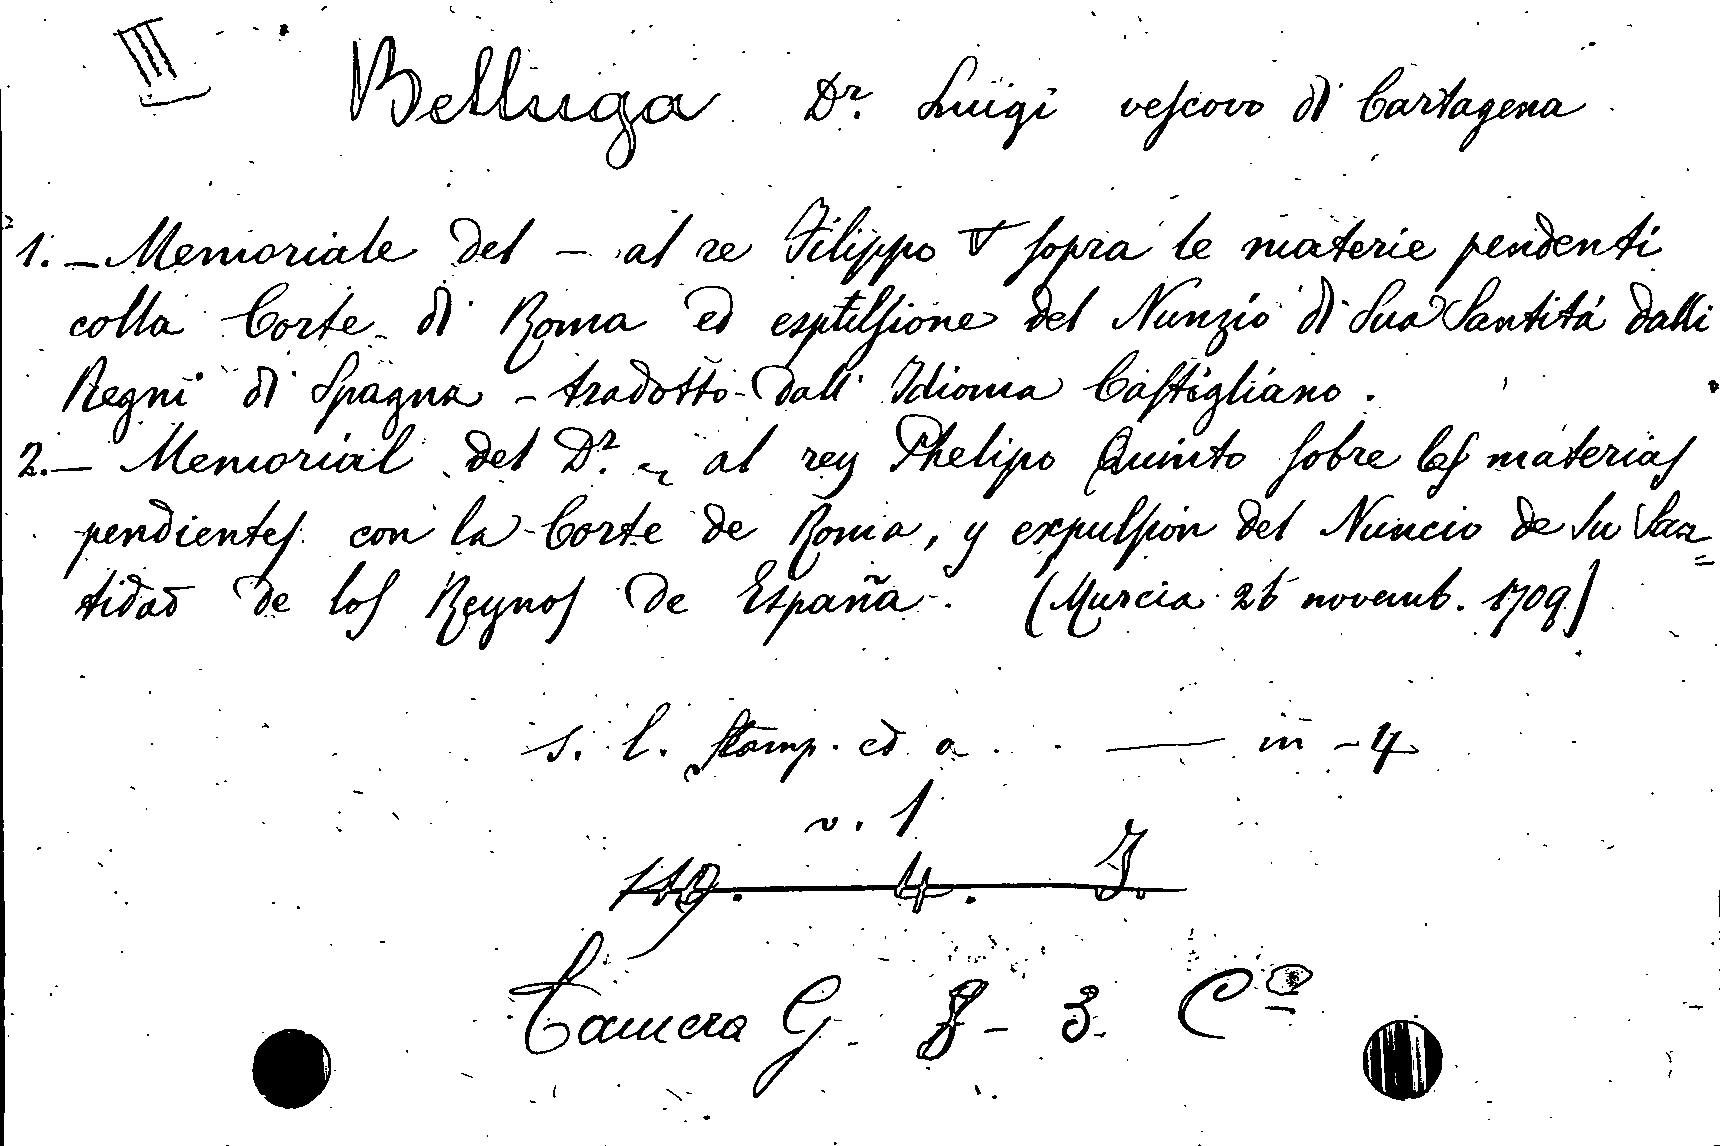 III
Belluga Dr. Luigi vescovo di Cartagena
1. – Memoriale del – al re Filippo V sopra le materie pendenti
colla Corte di Roma ed espulsione del Nunzio di Sua Santità dalli
Regni di Spagna – tradotto dall' Idioma Castigliano.
2. – Memorial del Dr. ~ al rey Phelipo Quinto sobre las materias
pendientes con la Corte de Roma, y expulsion del Nuncio de Su San=
tidad de los Reynos de España. (Murcia novemb. 1709)
s. l. stamp. ed a. — in-4
v. 1
119. 4. J.
Camera G. 8 – 3. Ca